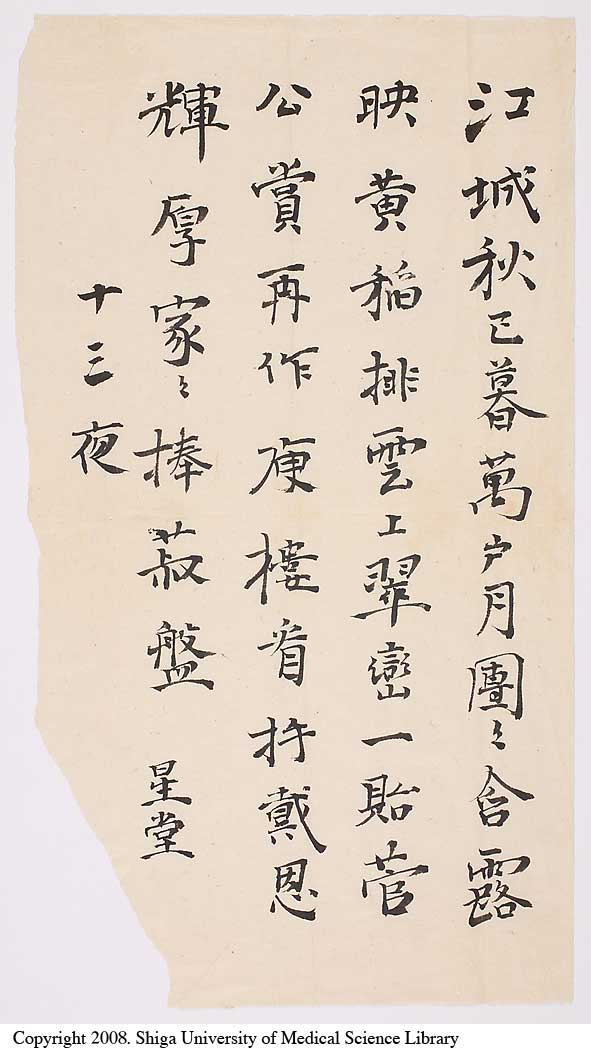 江城秋已暮萬戸月團々含露
映黄稲排雲上翠巒一貽菅
公賞再作庾樓看抃戴恩
輝厚家々捧菽盤 星堂
十三夜
Copyright 2008. Shiga University of Medical Science Library